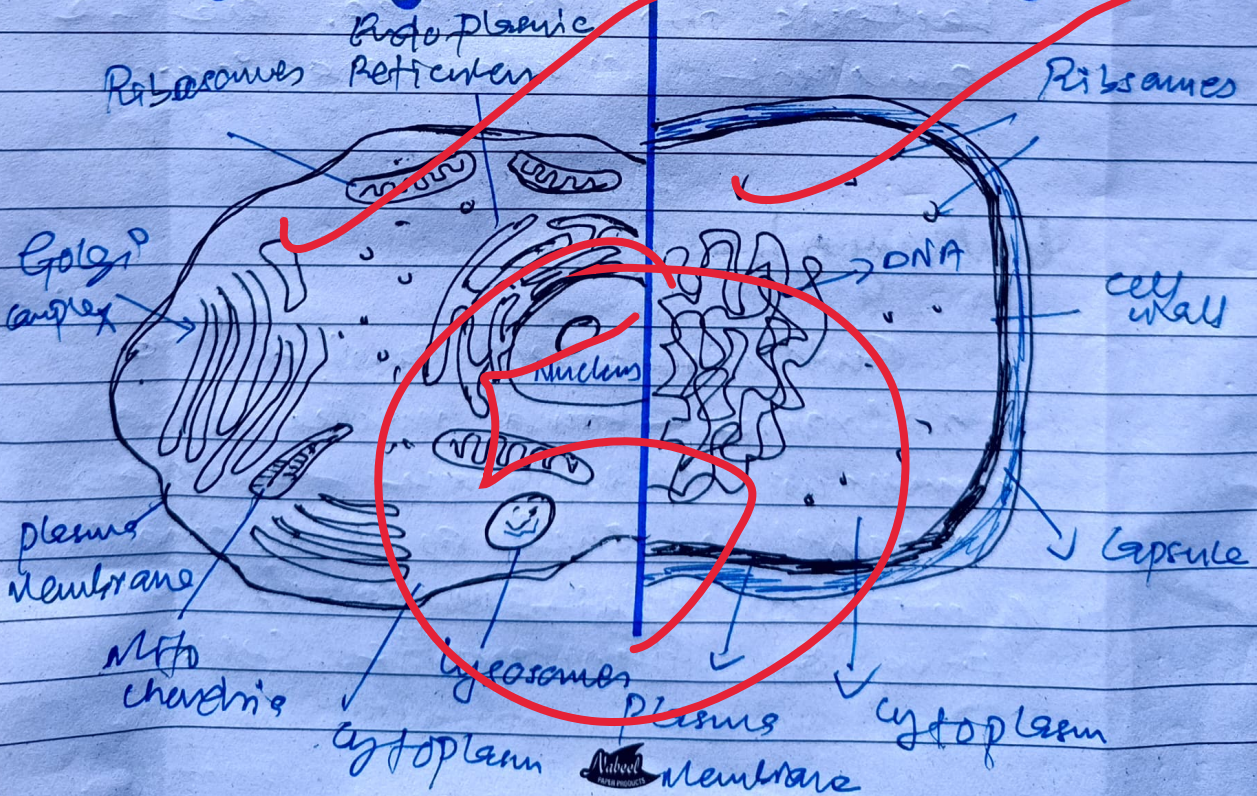 Endoplasmic
Ribosomes Reticulum
Ribsomes
Golgi
complex
DNA
cell
wall
Nucleus
plasma
Membrane
Capsule
Mito
chondria
Lysosomes
Cytoplasm
Plasma
Membrane
Cytoplasm
5
Nabeel
PAPER PRODUCTS